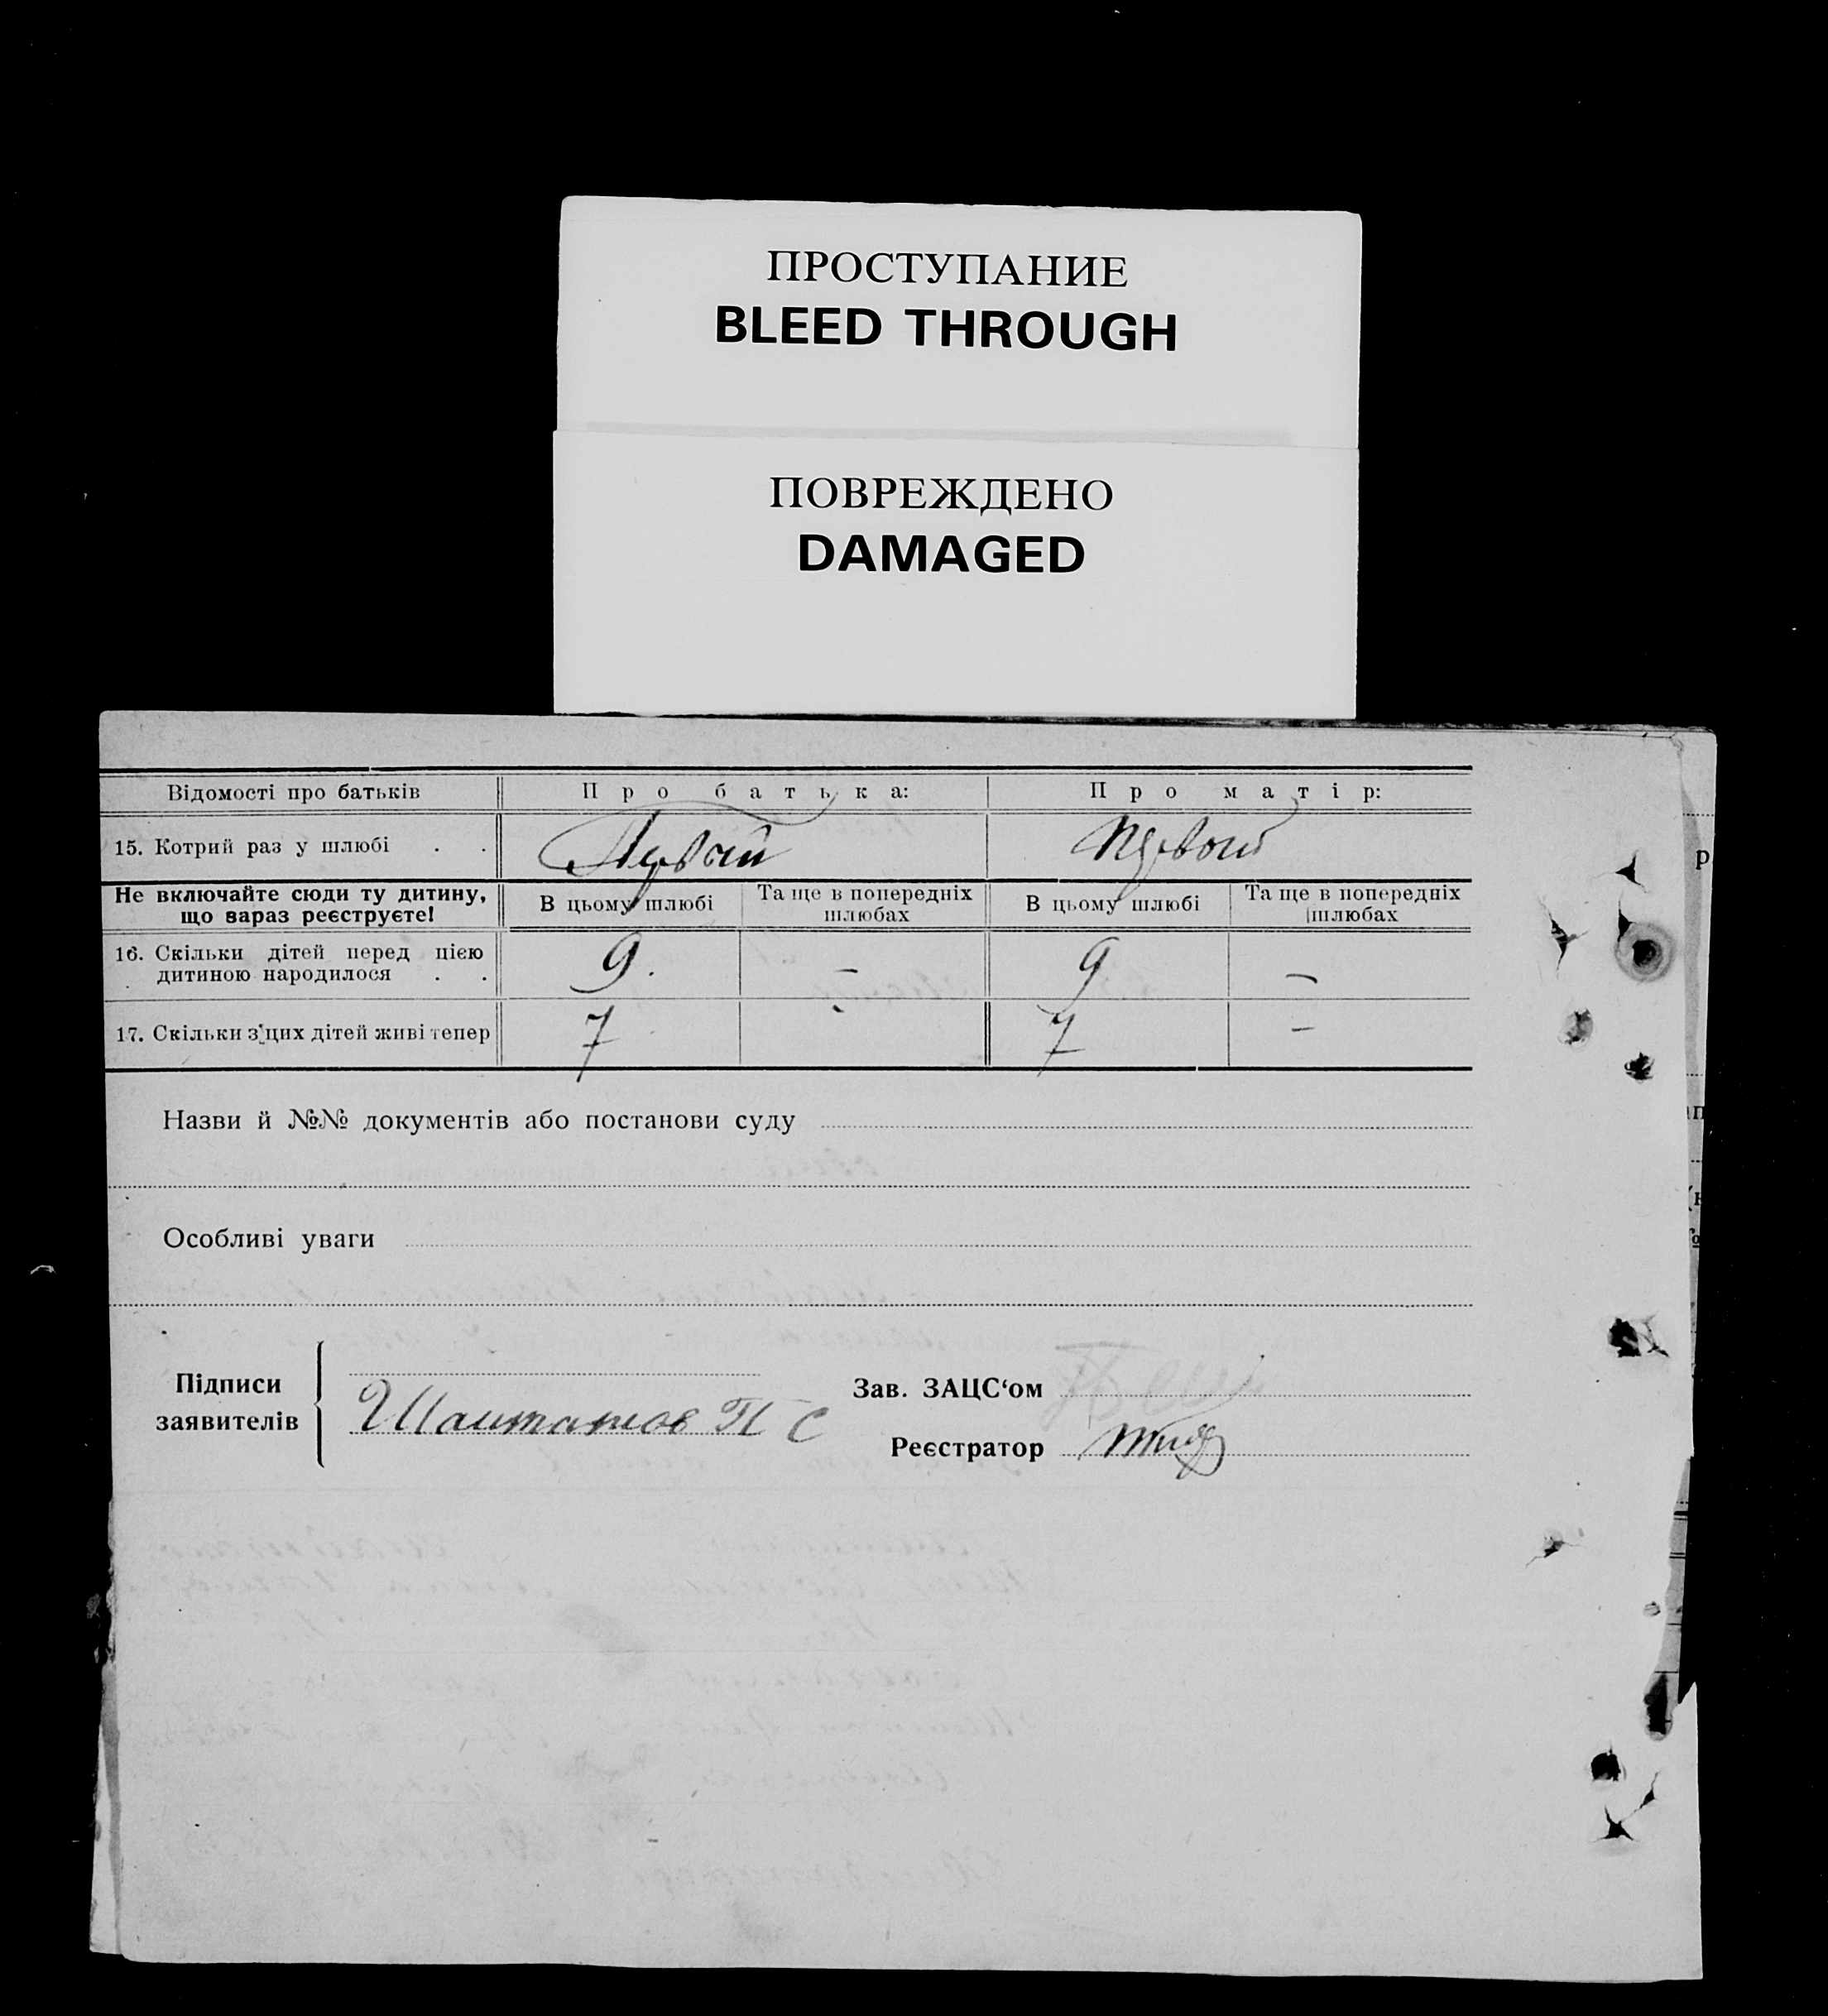 ПРОСТУПАНИЕ
BLEED THROUGH
ПОВРЕЖДЕНО
DAMAGED
Відомості про батьків Про батька: Про матір:
15. Котрий раз у шлюбі . . Первый Первый
Не включайте сюди ту дитину, що вараз реєструєте! В цьому шлюбі Та ще в попередніх шлюбах В цьому шлюбі Та ще в попередніх шлюбах
16. Скільки дітей перед цією
дитиною народилося . . 9. – 9 –
17. Скільки з'цих дітей живі тепер 7 - 7 –
Назви й №№ документів або постанови суду
Особливі уваги
Підписи
заявителів
Зав. ЗАЦС‘ом
П С
Реєстратор